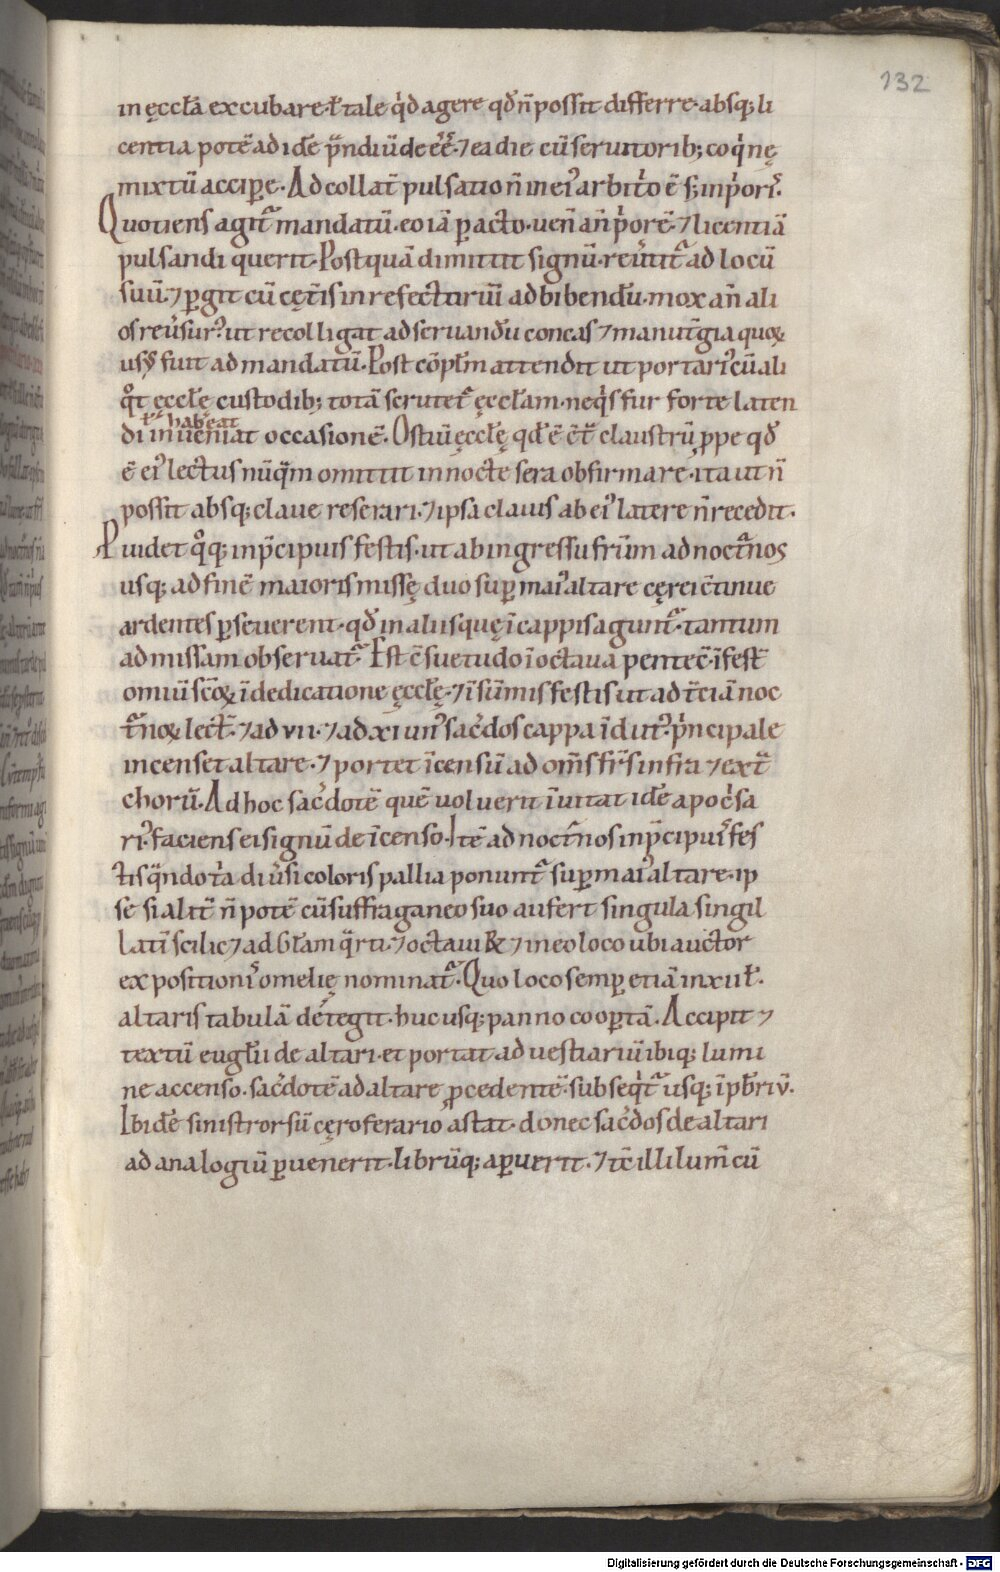 132
in ęccłā excubare· ł tale qͥd agere qđ n̄ possit differre· absq; li
centia potē ad idē p̄ndiū de eē·̄ ⁊ ea die cū seruitorib; coqͥnę
mixtū acciꝑe· Ad collat̄ pulsatio n̄ in eiꝰ arbitͥo ē s; in pͥoriſ·
Quotiens agit᷑ mandatū· eo iā ꝑacto· ueñ añ pͥorē· ⁊ licentiā
pulsandi querit· Postquā dimittit signū· reu͛tit᷑ ad locū
suū· ⁊ ꝑgit cū cęt͛is in refectoriū ad bibendū· mox añ ali
os reu͛surꝰ ut recolligat ad seruandū concas ⁊ manut͛gia quoꝝ
usꝰ fuit ad mandatū· Post cōpłm attendit ut portariꝰ cū ali
qͦt ęccłę custodib; totā scrutet᷑ ęccłam· neqͥs fur forte laten
di ł habeat inueniat occasionē· Ostiū ęccłę qđ ē c̄t̄ claustrū ꝓpe qđ
ē eiꝰ lectus nūqᷓm omittit in nocte sera obfirmare· ita ut n̄
possit absq; claue reserari· ⁊ ipsa clauis ab eiꝰ latere n̄ recedit·
Puidet qͦq; in p̄cipuis festis· ut ab ingressu fr̄um ad noct᷑nos
usq; ad finē maioris missę duo suꝑ maiꝰ altare cęrei c̄tinue
ardentes ꝑseuerent· qđ in aliis quę ī cappis agunt᷑· tantum
ad missam obseruat᷑· Est c̄suetudo ī octaua pentec̄· ī fest̄
omiū sc̄oꝝ ī dedicatione ęccłę· ⁊ ī sūmis festis ut ad t͛ciā noc
t᷑noꝝ lect̄· ⁊ ad vii· ⁊ ad xi unꝰ sac͛dos cappa īdutꝰ pͥncipale
incenset altare· ⁊ portet īcensū ad om̄s fr̄s infra ⁊ ext᷑
chorū· Ad hoc sac͛dotē quē uoluerit īuitat idē apoc͛sa
riꝰ faciens ei signū de īcenso· Itē ad noct͛nos in p̄cipuiſ fes
tis qᷓndo t͛a diu͛si coloris pallia ponunt᷑ suꝑ maiꝰ altare· ip
se si alit̄ n̄ potē cū suffraganeo suo aufert singula singil
latī scilic⁊ ad Głam qᷓrti· ⁊ octaui ℟ ⁊ in eo loco ubi auctor
expositioniſ omelię nominat᷑· Quo loco semꝑ etiā in xii ł·
altaris tabulā detegit· huc usq; panno cooꝑtā· Accipit ⁊
textū eugłii de altari· et portat ad uestiariū ibiq; lumi
ne accenso· sac͛dotē ad altare ꝓcedentē· subseqͥt᷑ usq; ī pƀriū·
Ibidē sinistrorsū cęroferario astat· donec sac͛dos de altari
ad analogiū ꝑuenerit· librūq; aꝑuerit· ⁊ tc̄ illi lum̄ cū
Digitalisierung gefördert durch die Deutsche Forschungsgemeinschaft - DFG